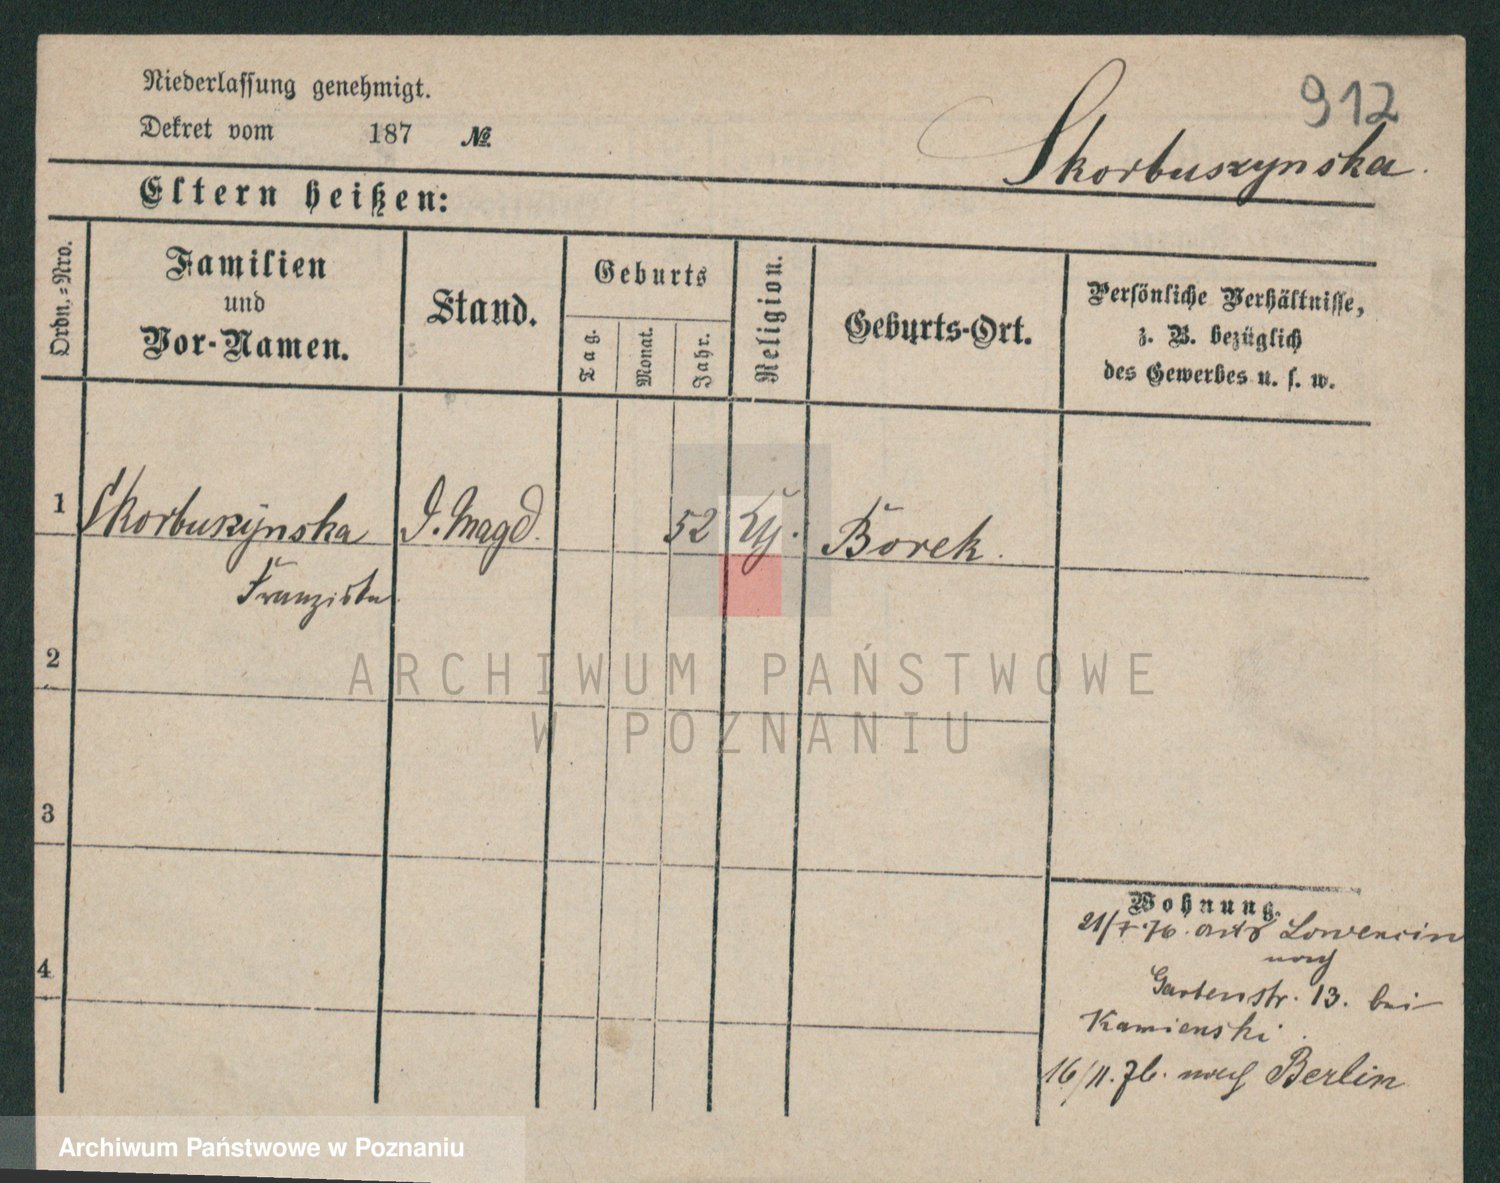 912
Niederlassung genehmigt.
Dekret vom 187 №
Skorbuszynska.
Eltern heißen:
Ordn.-Nro.
Familien
und
Vor-Namen.
Stand.
Geburts
Tag.
Monat.
Jahr.
Religion.
Geburts-Ort.
Persönliche Verhältnisse,
z. B. bezüglich
des Gewerbes u. s. w.
1 Skorbuszynska D. Magd. 52 Borek.
Franziska
2
3
4
Wohnung.
21/7.76. aus Lowencin
nach
Gartenstr. 13. bei
Kamienski
16/11.76. nach Berlin
ARCHIWUM PAŃSTWOWE
W POZNANIU
Archiwum Państwowe w Poznaniu